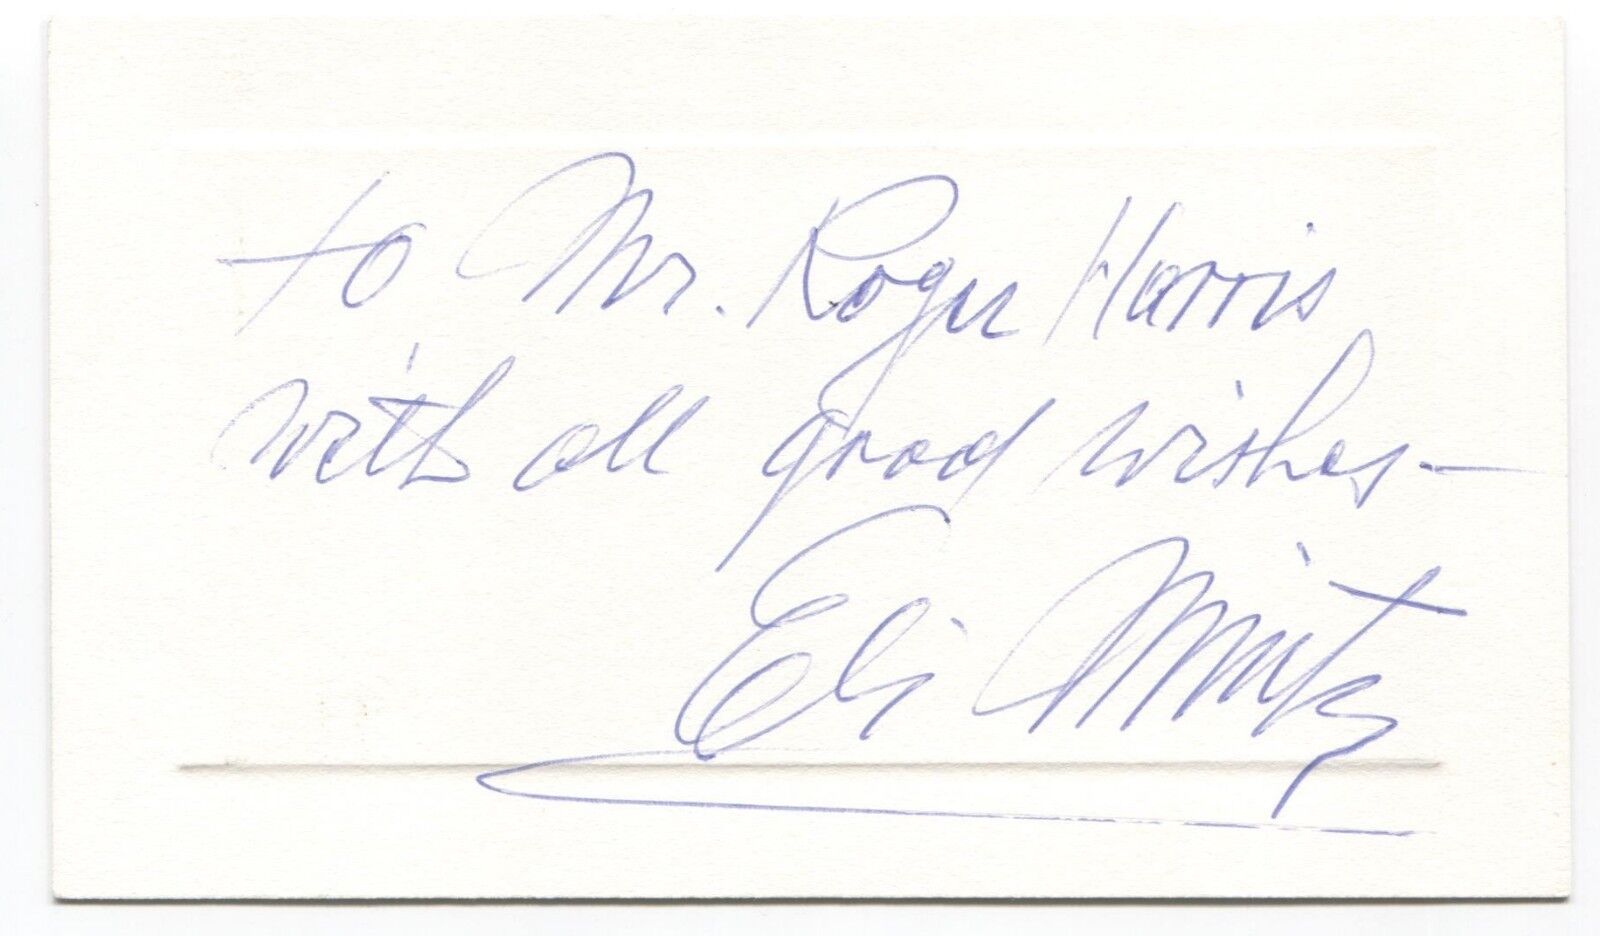 to Mr. Roger Harris
with all good wishes—
Eli Mintz